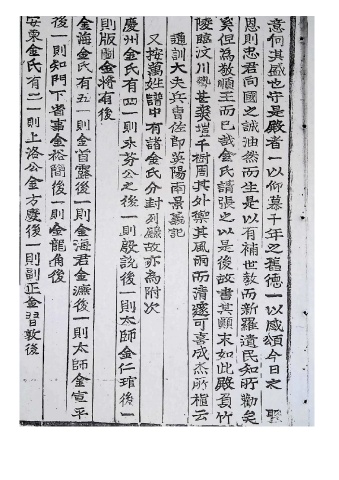 意何其盛也守是殿者一以仰慕千年之舊德一以感頌今日之 聖
恩則忠君向國之誠油然而生是以有補世敎而新羅遺民知所勸矣
奚但為敬順王而已哉金氏請張之以是後故書其顚末如此殿負竹
陵臨汶川甚壇千樹周其外禦其風雨而清邃可喜成杰所植云
通訓大夫兵曹佐郎英陽南景羲記
又按萬姓譜中有諸金氏分封列嚴故亦為附次
慶州金氏有四一則永芬公之後一則殷說後一則太師金仁琯後一
則版圖金將有後
金海金氏有五一則金首露後一則金海君金濂後一則太師金宣平
後一則知門下省事金裕簡後一則金龍角後
安東金氏有二一則上洛公金方慶後一則副正金習敦後